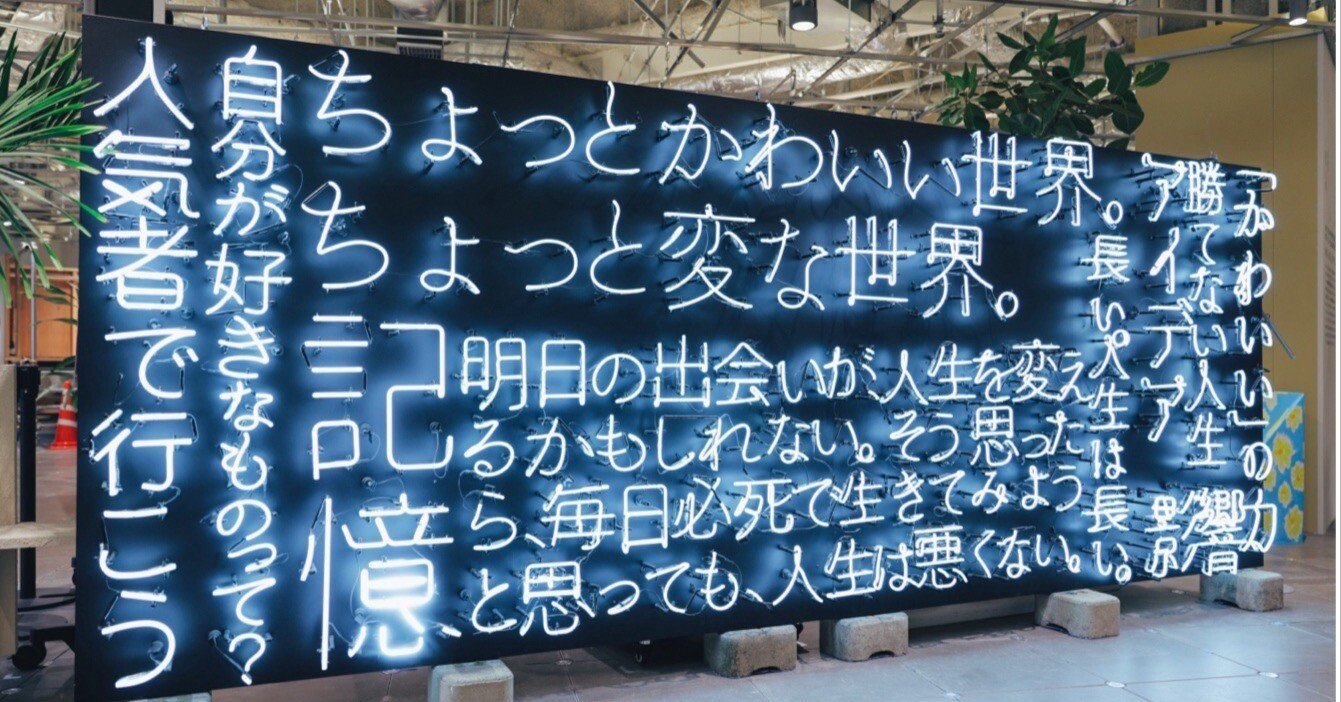 「かわいい」の力
勝てない人生
アイデア
影響
野泉
長い。人生は長い。
ちょっとかわいい世界。
ちょっと変な世界。
記憶
明日の出会いが、人生を変え
るかもしれない。そう思った
ら、毎日必死で生きてみよう
と思っても、人生は悪くない。
自分が好きなものって？
人気者で行こう